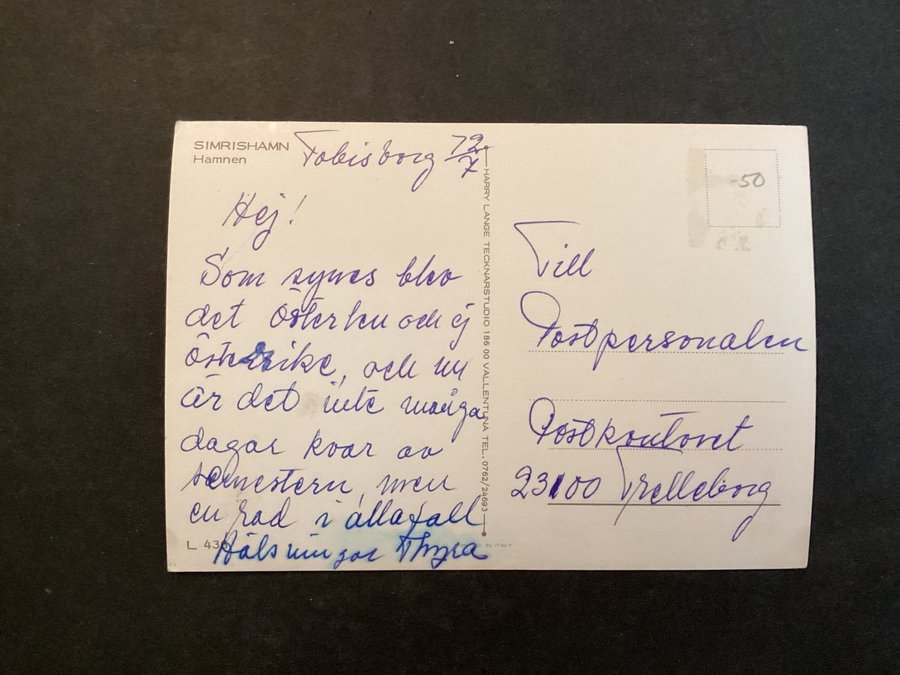 SIMRISHAMN
Hamnen
Tobisborg
Hej!
Som synes blev
det Österlen och ej
Österrike, och nu
är det inte många
dagar kvar av
semestern, men
en rad i allafall
Hälsningar Thyra
L 43
HARRY LANGE TECKNARSTUDIO 186 00 VALLENTUNA TEL. 0762/24693
-50
Till
Postpersonalen
Postkontoret
23100 Trelleborg